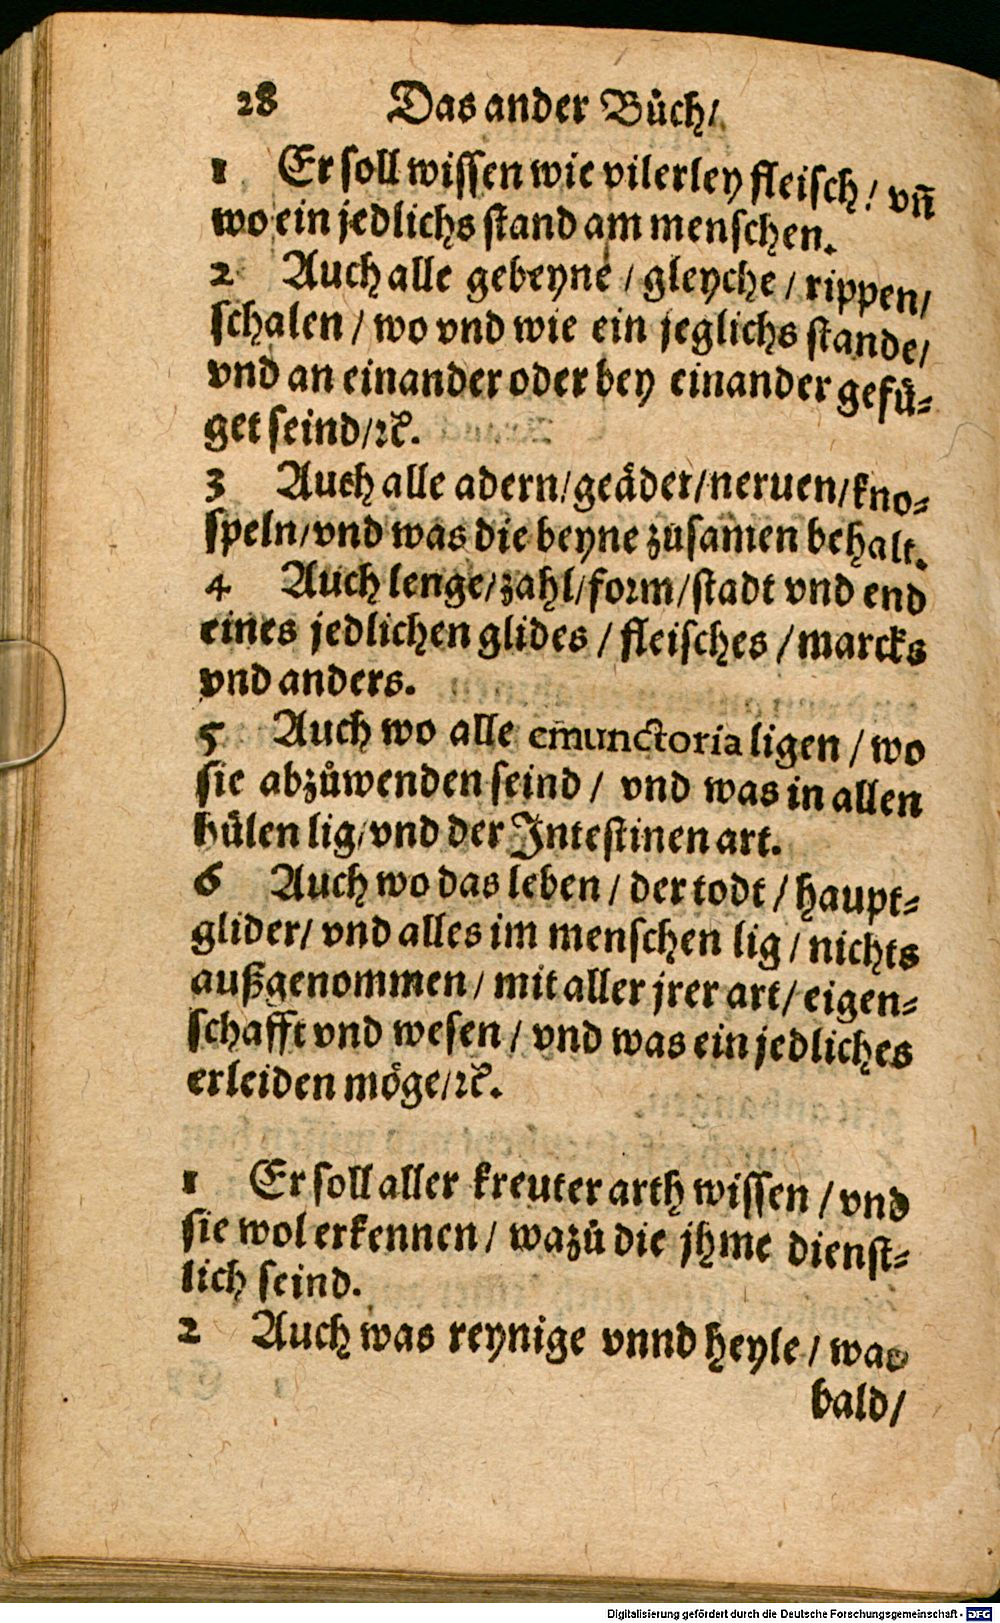 28 Das ander Bůch/
1 Er soll wissen wie vilerley fleisch/ vñ
wo ein jedlichs stand am menschen.
2 Auch alle gebeyne / gleyche / rippen/
schalen / wo vnd wie ein jeglichs stande/
vnd an einander oder bey einander gefü-
get seind/ꝛc̃.
3 Auch alle adern/geäder/neruen/kno-
speln/vnd was die beyne zůsamen behalt.
4 Auch lenge/zahl/form/stadt vnd end
eines jedlichen glides / fleisches / marcks
vnd anders.
5 Auch wo alle emunctoria ligen / wo
sie abzůwenden seind / vnd was in allen
hülen lig/vnd der Intestinen art.
6 Auch wo das leben / der todt / haupt-
glider/ vnd alles im menschen lig / nichts
außgenommen / mit aller jrer art/ eigen-
schafft vnd wesen / vnd was ein jedliches
erleiden möge/ꝛc̃.
1 Er soll aller kreuter arth wissen / vnd
sie wol erkennen / wazů die jhme dienst-
lich seind.
2 Auch was reynige vnnd heyle / was
bald/
Digitalisierung gefördert durch die Deutsche Forschungsgemeinschaft - DFG